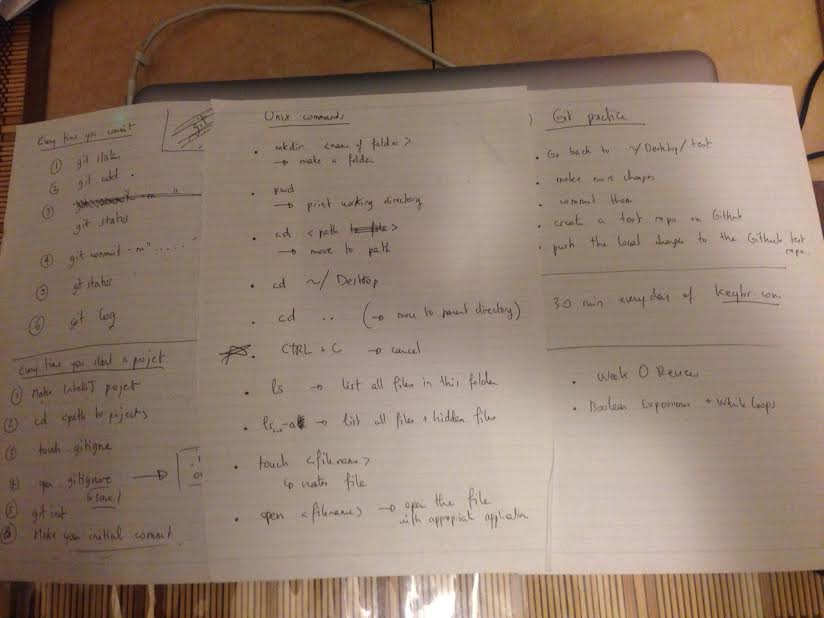 Every time you commit
① git state
② git add .
③
git status
④ git commit -m "....."
⑤ git status
⑥ git log
Every time you start a projet
① Make IntelliJ projet
② cd <path to projects
③ touch .gitignre
④ open gitignore
↳ save!
⑤ git init
⑥ Make you initial commit
Unix commands
• mkdir <name of folder>
→ make a folder
• pwd
→ print working directory
• cd <path >
→ move to path
• cd ~/Desktop
• cd .. (→ move to parent directory)
• CTRL + C → cancel
• ls → list all files in this folder
• ls -a → list all files + hidden files
• touch <filename>
↳ file
• open <filename> → open the file
with appropriat application
Git practice
• Go back to ~/Desktop/test
• make more changes
• commit them
• create a test repo on Github
• push the local changes to the Github test
repo
30 min every day of keybr.com
• Week 0 Review
• Boolean Expressions + While Loops